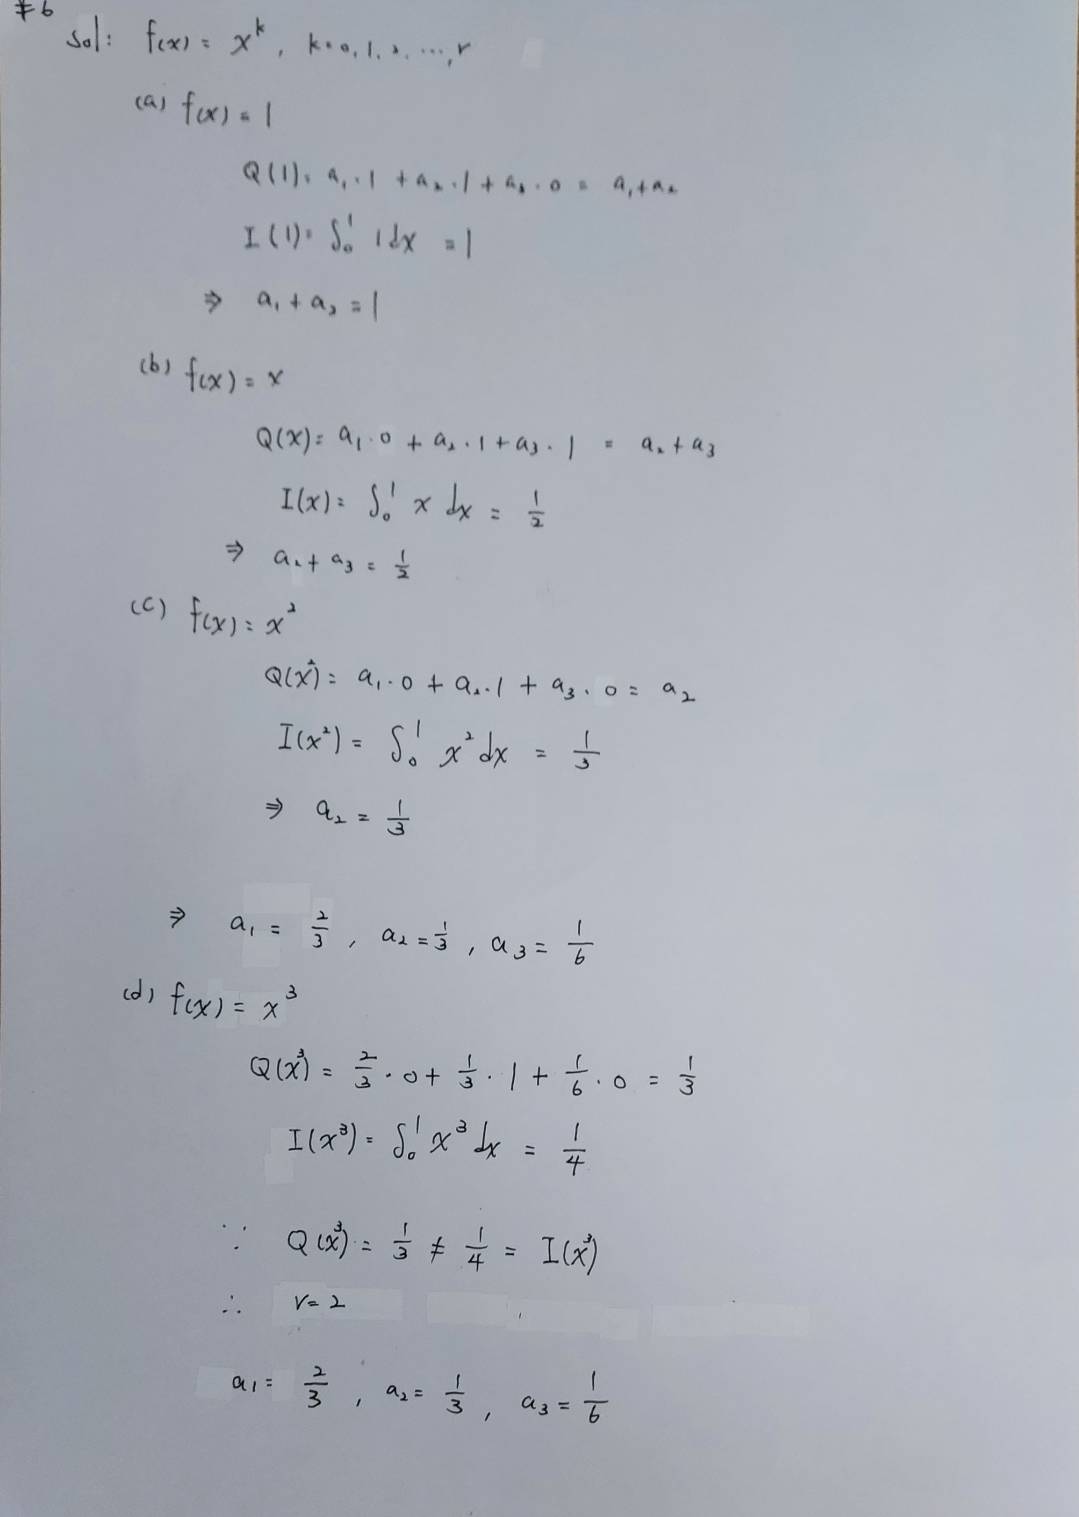 #6
Sol: f(x) = x^k, k=0,1,2,...,r
(a) f(x) = 1
Q(1) = a₁·1 + a₂·1 + a₃·0 = a₁+a₂
I(1) = ∫₀¹ 1dx = 1
⇒ a₁ + a₂ = 1
(b) f(x) = x
Q(x) = a₁·0 + a₂·1 + a₃·1 = a₂ + a₃
I(x) = ∫₀¹ x dx = 1/2
⇒ a₂ + a₃ = 1/2
(c) f(x) = x²
Q(x²) = a₁·0 + a₂·1 + a₃·0 = a₂
I(x²) = ∫₀¹ x² dx = 1/3
⇒ a₂ = 1/3
⇒ a₁ = 2/3, a₂ = 1/3, a₃ = 1/6
(d) f(x) = x³
Q(x³) = 2/3·0 + 1/3·1 + 1/6·0 = 1/3
I(x³) = ∫₀¹ x³ dx = 1/4
∵ Q(x³) = 1/3 ≠ 1/4 = I(x³)
∴ r = 2
a₁ = 2/3, a₂ = 1/3, a₃ = 1/6